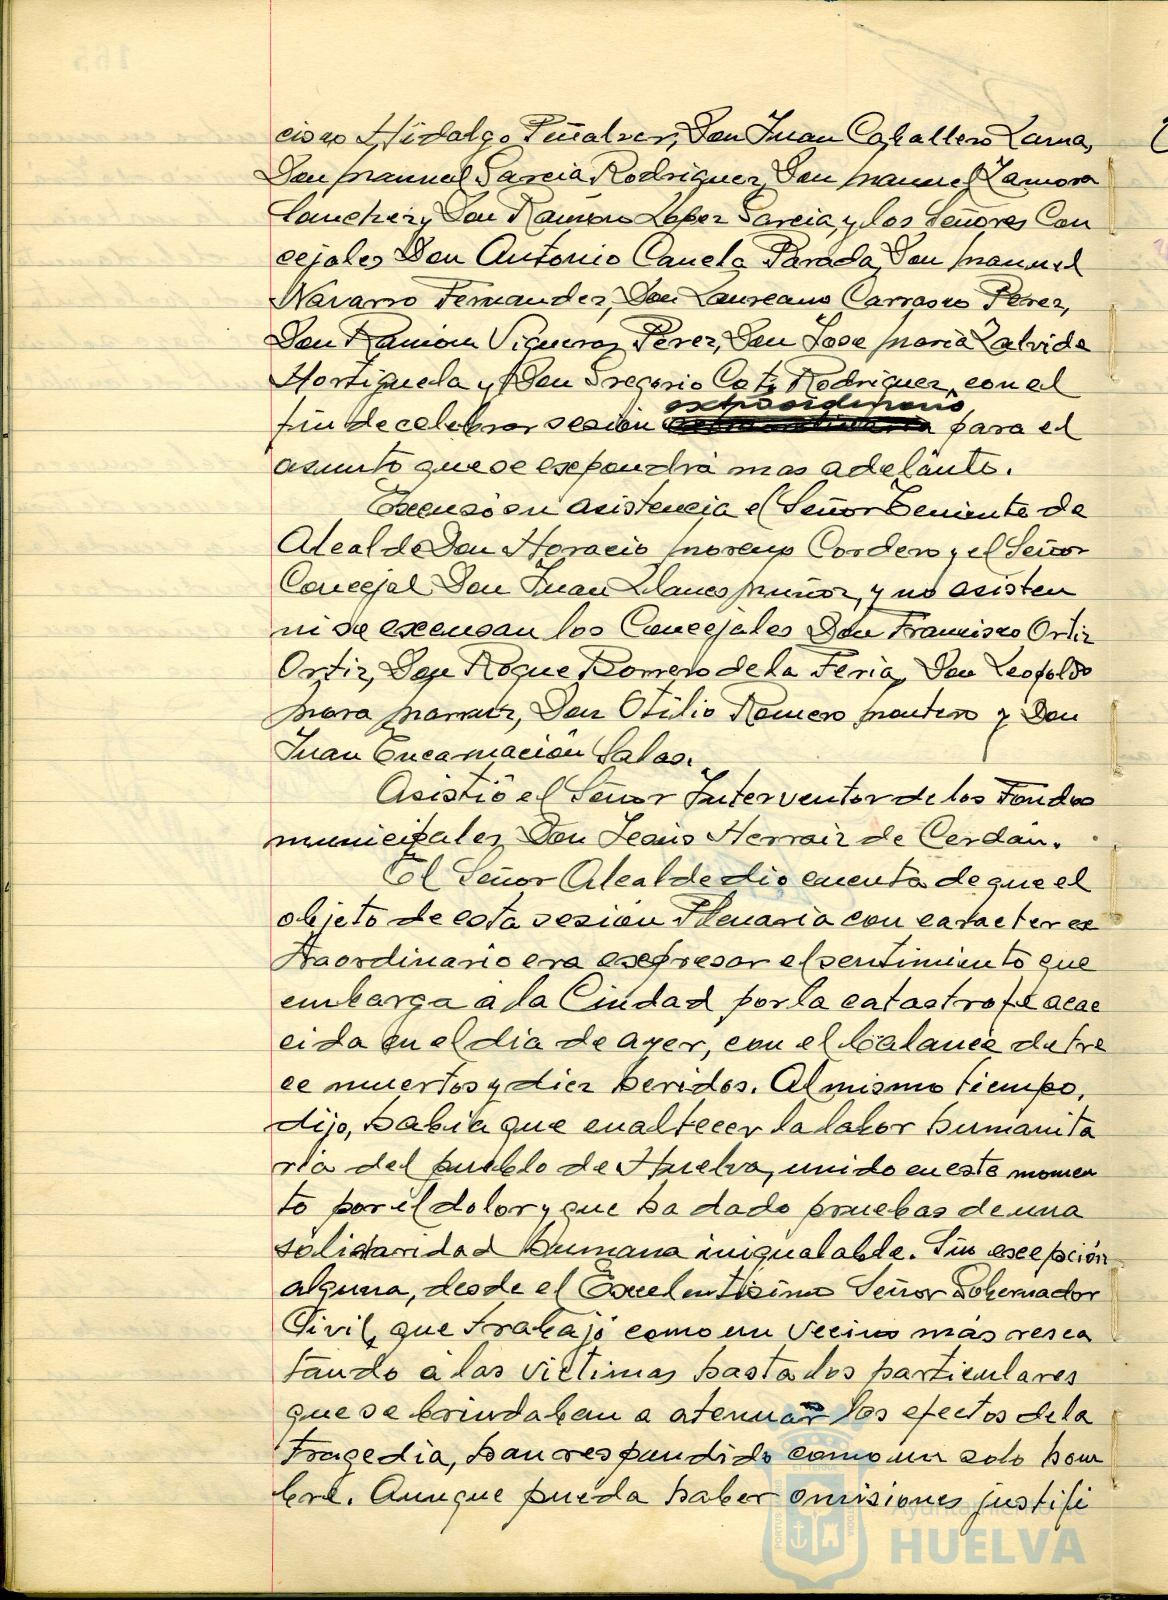 cisco Hidalgo Peñalver, Don Juan Caballero Lama,
Don Manuel García Rodriguez, Don Manuel Zamora
Sanchez y Don Ramón Lopez Garcia, y los Señores Con
cejales Don Antonio Canela Parada, Don Manuel
Navarro Fernandez, Don Laureano Carrasco Pérez,
Don Ramón Vigueras Pérez, Don Jose María Zalvide
Hortiguela y Don Gregorio Coty Rodriguez, con el
extraordinaria
fin de celebrar sesión para el
asunto que se expondrá mas adelante.
Excusó su asistencia el Señor Teniente de
Alcalde Don Horacio Moreno Cordero y el Señor
Concejal Don Juan Llanes Muñoz, y no asisten
ni se excusan los Concejales Don Francisco Ortiz
Ortiz, Don Roque Borrero de la Feria, Don Leopoldo
Mora, Don Otilio Romero Montero y Don
Juan Encarnación Salas.
Asistió el Señor Interventor de los Fondos
municipales, Don Jesús Herraiz de Cerdán.
El Señor Alcalde dió cuenta de que el
objeto de esta sesión Plenaria con caracter ex
traordinario era expresar el sentimiento que
embarga a la Ciudad por la catastrofe acae
cida en el dia de ayer, con el balance de tre
ce muertos y diez heridos. Al mismo tiempo,
dijo, había que enaltecer la labor humanita
ria del pueblo de Huelva, unido en este momen
to por el dolor y que ha dado pruebas de una
solidaridad humana inigualable. Sin excepción
alguna, desde el Excelentísimo Señor Gobernador
Civil, que trabajó como un vecino más resca
tando a las victimas hasta los particulares
que se brindaban a atenuar los efectos de la
tragedia, han respondido como un solo hom
bre. Aunque pueda haber omisiones justifi
Ayuntamiento de
HUELVA